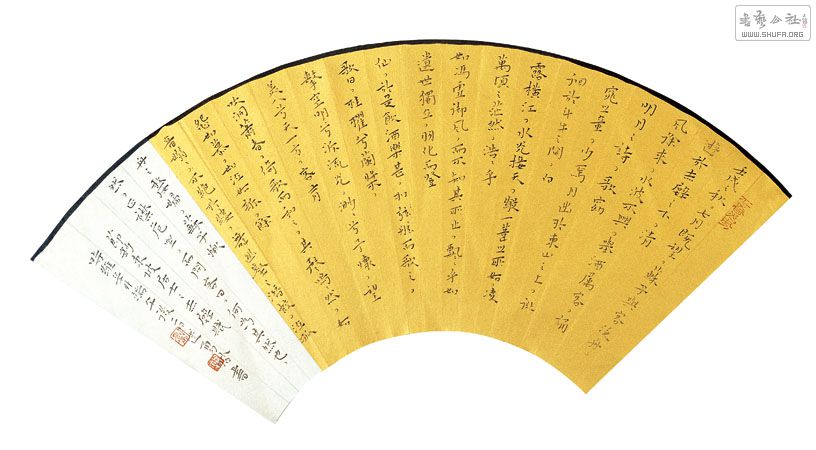 壬戌之秋七月既望蘇子與客泛舟
遊於赤壁之下清
風徐來水波不興舉酒屬客誦
明月之詩歌窈
窕之章少焉月出於東山之上徘
徊於斗牛之間白
露橫江水光接天縱一葦之所如凌
萬頃之茫然浩浩乎
如馮虛御風而不知其所止飄乎如
遺世獨立羽化而登
仙於是飲酒樂甚扣舷而歌之
歌曰桂櫂兮蘭槳
擊空明兮泝流光渺渺兮予懷望
美人兮天一方客有
吹洞簫者倚歌而和之其聲嗚然如
怨如慕如泣如訴餘
音嫋嫋不絕如縷舞幽壑之潛蛟泣孤
舟之嫠婦蘇子愀
然正襟危坐而問客曰何為其然也
節錄東坡居士赤壁賦
書藝公社
WWW.SHUFA.ORG